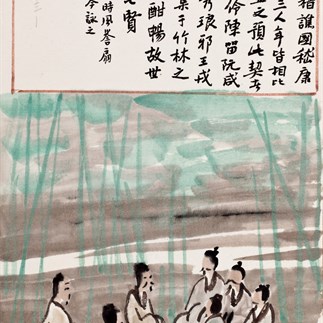 籍譙國嵇康
三人年皆相比
之預此契者
伶陳留阮咸
秀琅邪王戎
集于竹林之
酣暢故世
七賢
時風誉扇
今詠之